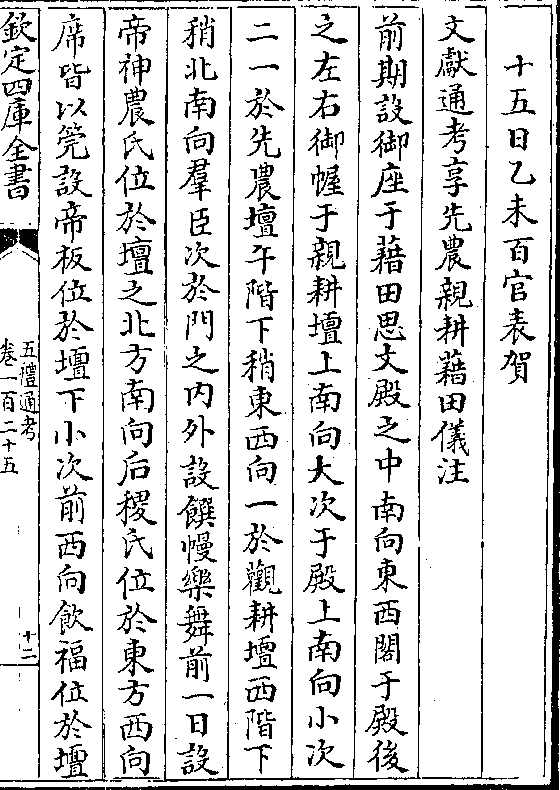 十五日乙未百官表賀
文獻通考享先農親耕藉田儀注
前期設御座于藉田思文殿之中南向東西閤于殿後
之左右御幄于親耕壇上南向大次于殿上南向小次
二一於先農壇午階下稍東西向一於觀耕壇西階下
稍北南向羣臣次於門之内外設饌幔樂舞前一日設
帝神農氏位於壇之北方南向后稷氏位於東方西向
席皆以筦設帝板位於壇下小次前西向飲福位於壇
欽定四庫全書
五禮通考
卷一百二十五
十二